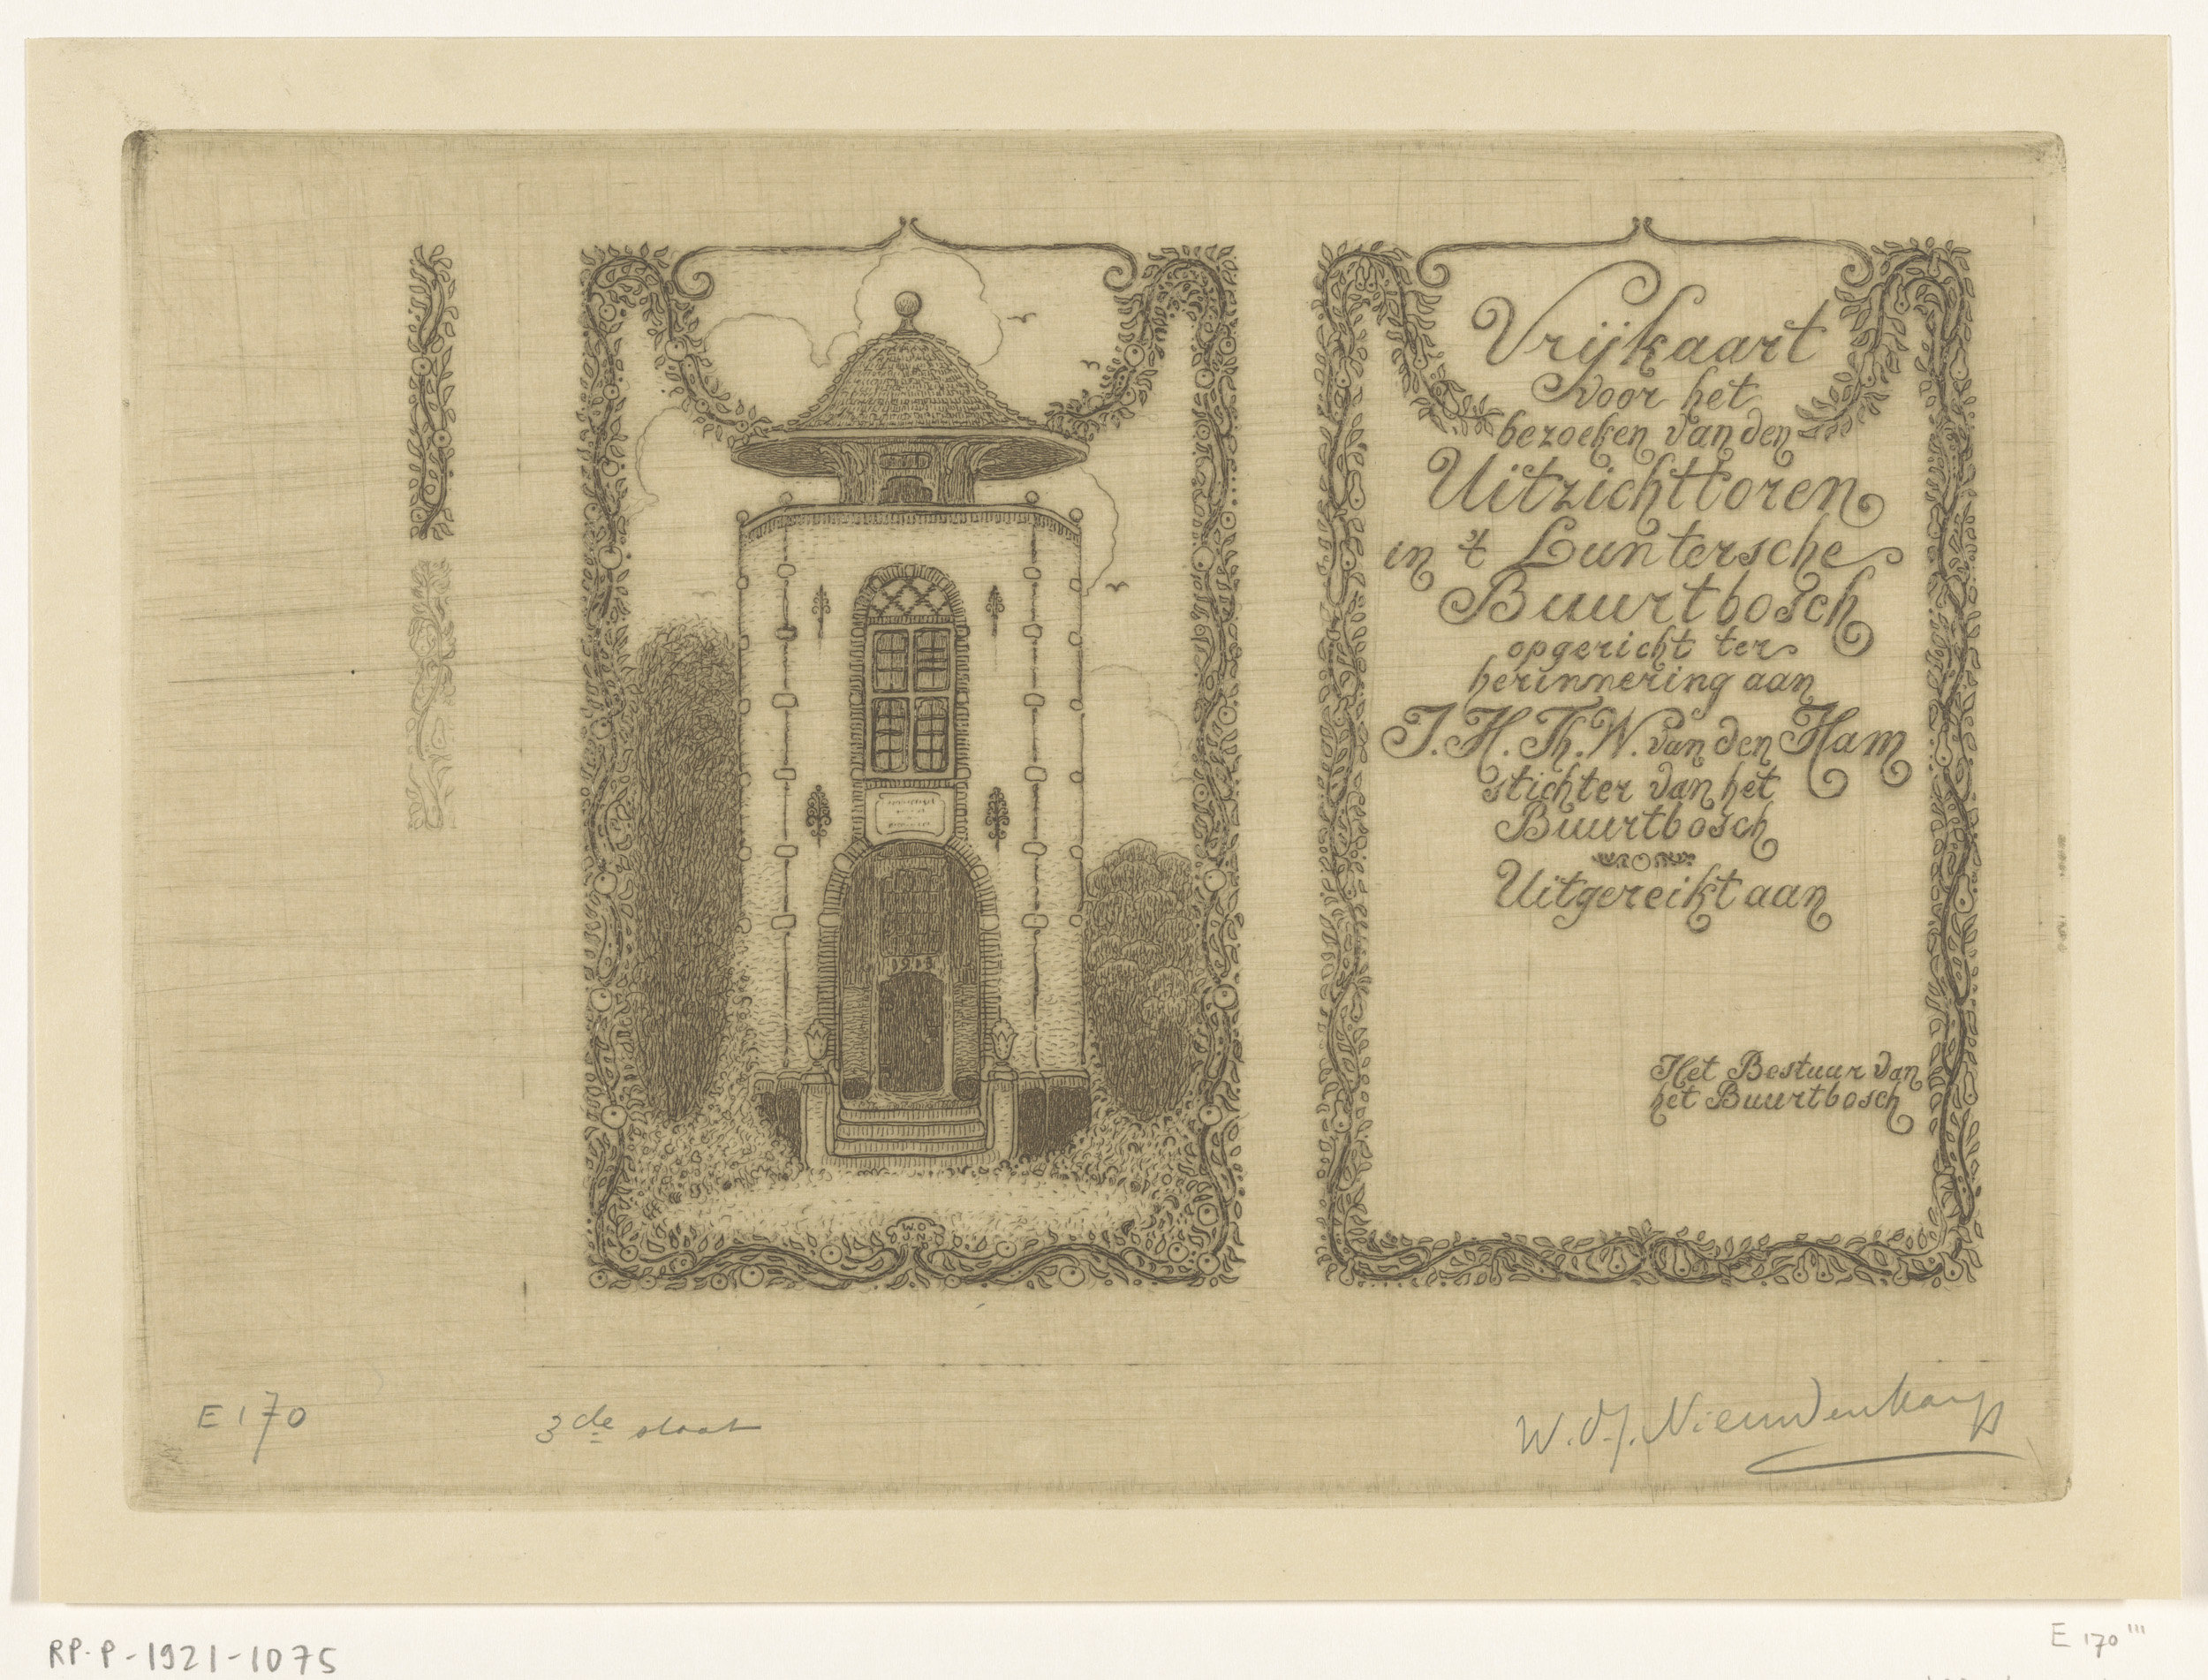 Vrijkaart
voor het
bezoeken van den
Uitzichttoren
in 't Luntersche
Buurtbosch
opgericht ter
herinnering aan
J. H. Th. W. van den Ham
stichter van het
Buurtbosch
Uitgereikt aan
Het Bestuur van
het Buurtbosch
1913
W.O.
J.N.
E 170
3de staat
W.O.J. Nieuwenkamp
RP-P-1921-1075
E 170 '''